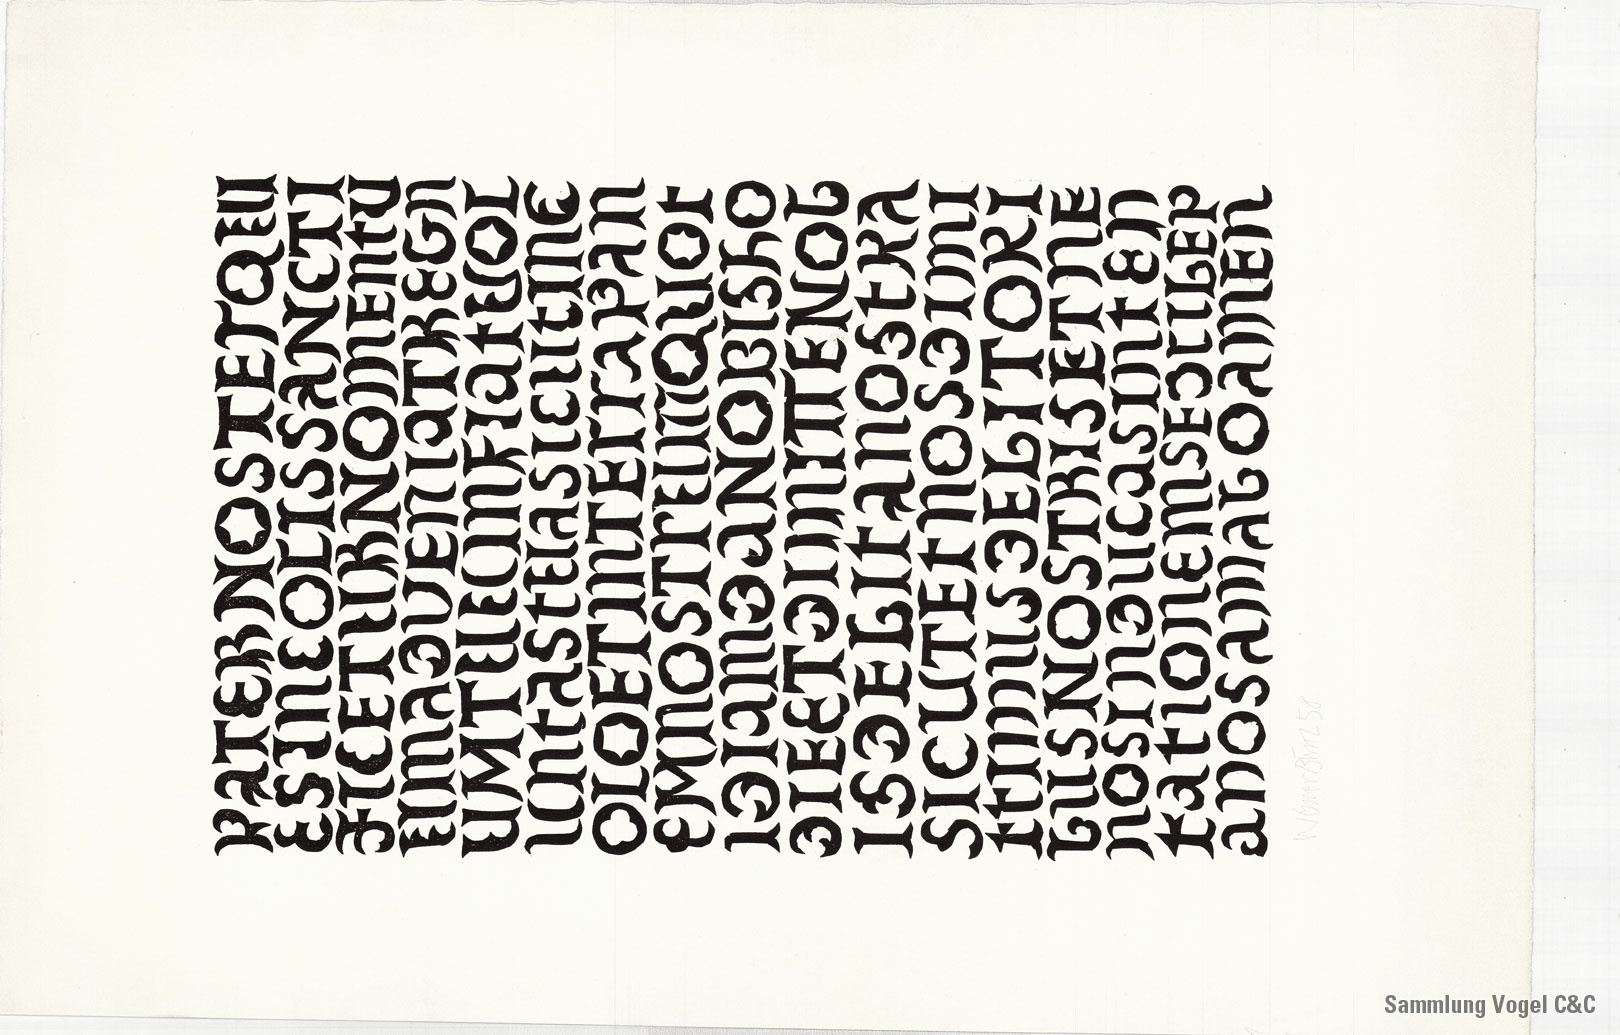 PATERNOSTERQUI
ESINCOLISSANCTI
FICETURNOMENTU
UMADVENIATREGN
UMTUUMFIATVOL
UNTASTUASICUTINC
OLOETINTERRAPAN
EMNOSTRUMQUOT
IDIAMDANOBISHO
DIEETDIMITTENOB
ISDEBITANOSTRA
SICUTETNOSDIMI
TTIMUSDEBITORI
BUSNOSTRISETNE
NOSINDUCASINTEN
TATIONEMSEDLIBER
ANOSAMALOAMEN
Sammlung Vogel C&C